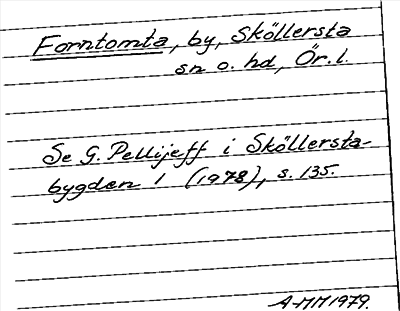 Forntomta, by, Sköllersta
sn o. hd, Ör. l.
Se G. Pellijeff i Sköllersta-
bygden 1 (1978), s. 135.
A-MM 1979.